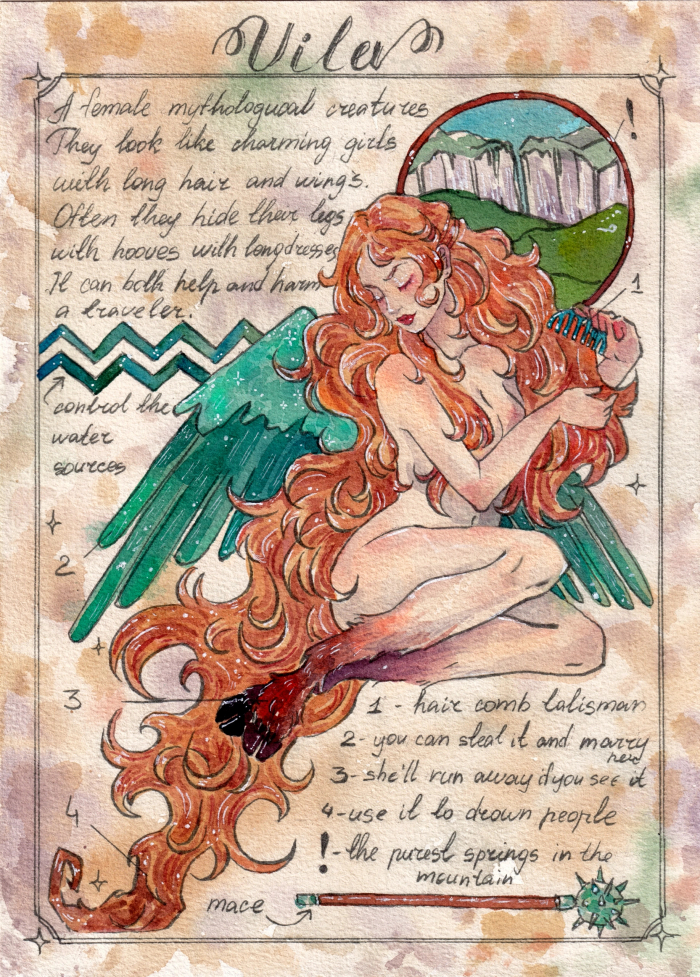 Vila
A female mythologucal creatures
They look like charming girls
with long hair and wings.
Often they hide their legs
with hooves with long dresses
It can both help and harm
a traveler.
!
1
control the
water
sources
2
3
1 - hair comb talisman
2 - you can steal it and marry
her
3 - she'll run away if you see it
4
4 - use it to drown people
! - the purest springs in the
mountain
mace